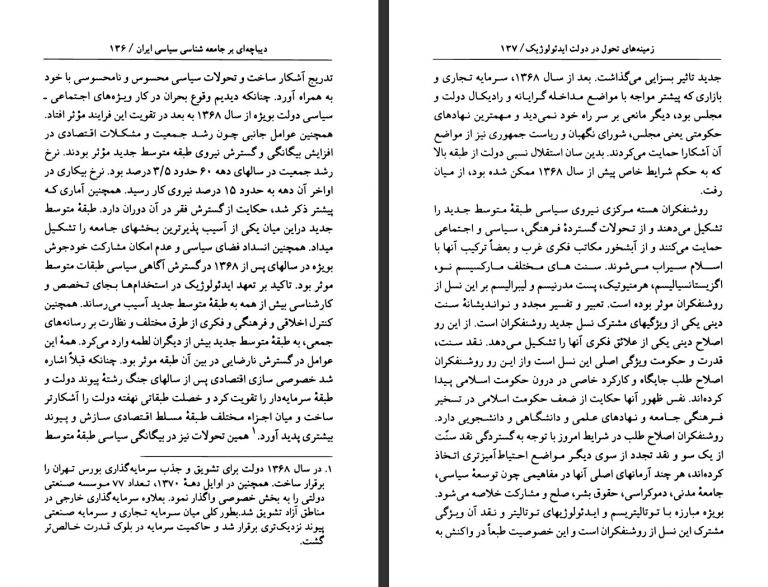 دیباچه‌ای بر جامعه شناسی سیاسی ایران / ۱۳۶
تدریج آشکار ساخت و تحولات سیاسی محسوس و نامحسوسی با خود
به همراه آورد. چنانکه دیدیم وقوع بحران در کار ویژه‌های اجتماعی ـ
سیاسی دولت بویژه از سال ۱۳۶۸ به بعد در تقویت این فرایند مؤثر افتاد.
همچنین عوامل جانبی چون رشد جمعیت و مشکلات اقتصادی در
افزایش بیگانگی و گسترش نیروی طبقه متوسط جدید مؤثر بودند. نرخ
رشد جمعیت در سالهای دهه ۶۰ حدود ۳/۵ درصد بود. نرخ بیکاری در
اواخر آن دهه به حدود ۱۵ درصد نیروی کار رسید. همچنین آماری که
پیشتر ذکر شد، حکایت از گسترش فقر در آن دوران دارد. طبقهٔ متوسط
جدید دراین میان یکی از آسیب پذیرترین بخشهای جامعه را تشکیل
میداد. همچنین انسداد فضای سیاسی و عدم امکان مشارکت خودجوش
بویژه در سالهای پس از ۱۳۶۸ درگسترش آگاهی سیاسی طبقات متوسط
موثر بود. تاکید بر تعهد ایدئولوژیک در استخدام‌ها بجای تخصص و
کارشناسی بیش از همه به طبقهٔ متوسط جدید آسیب می‌رساند. همچنین
کنترل اخلاقی و فرهنگی و فکری از طرق مختلف و نظارت بر رسانه‌های
جمعی، به طبقهٔ متوسط جدید بیش از دیگران لطمه وارد می‌کرد. همهٔ این
عوامل در گسترش نارضایی در بین آن طبقه موثر بود. چنانکه قبلاً اشاره
شد خصوصی سازی اقتصادی پس از سالهای جنگ رشتهٔ پیوند دولت و
طبقهٔ سرمایه‌دار را تقویت کرد و خصلت طبقاتی نهفته دولت را آشکارتر
ساخت و میان اجزاء مختلف طبقهٔ مسلط اقتصادی سازش و پیوند
بیشتری پدید آورد.۱ همین تحولات نیز در بیگانگی سیاسی طبقهٔ متوسط
۱. در سال ۱۳۶۸ دولت برای تشویق و جذب سرمایه‌گذاری بورس تهران را
برقرار ساخت. همچنین در اوایل دههٔ ۱۳۷۰، تعداد ۷۷ موسسه صنعتی
دولتی را به بخش خصوصی واگذار نمود. بعلاوه سرمایه‌گذاری خارجی در
مناطق آزاد تشویق شد.بطور کلی میان سرمایه تجاری و سرمایه صنعتی
پیوند نزدیک‌تری برقرار شد و حاکمیت سرمایه در بلوک قدرت خالص‌تر
گشت.
زمینه‌های تحول در دولت ایدئولوژیک / ۱۳۷
جدید تاثیر بسزایی می‌گذاشت. بعد از سال ۱۳۶۸، سرمایه تجاری و
بازاری که پیشتر مواجه با مواضع مداخله گرایانه و رادیکال دولت و
مجلس بود، دیگر مانعی بر سر راه خود نمی‌دید و مهمترین نهادهای
حکومتی یعنی مجلس، شورای نگهبان و ریاست جمهوری نیز از مواضع
آن آشکارا حمایت می‌کردند. بدین سان استقلال نسبی دولت از طبقه بالا
که به حکم شرایط خاص پیش از سال ۱۳۶۸ ممکن شده بود، از میان
رفت.
روشنفکران هسته مرکزی نیروی سیاسی طبقهٔ متوسط جدید را
تشکیل می‌دهند و از تحولات گستردهٔ فرهنگی، سیاسی و اجتماعی
حمایت می‌کنند و از آبشخور مکاتب فکری غرب و بعضاً ترکیب آنها با
اسلام سیراب می‌شوند. سنت های مختلف مارکسیسم نو،
اگزیستانسیالیسم، هرمنیوتیک، پست مدرنیسم و لیبرالیسم بر این نسل از
روشنفکران موثر بوده است. تعبیر و تفسیر مجدد و نواندیشانهٔ سنت
دینی یکی از ویژگیهای مشترک نسل جدید روشنفکران است. از این رو
اصلاح دینی یکی از علائق فکری آنها را تشکیل می‌دهد. نقد سنت،
قدرت و حکومت ویژگی اصلی این نسل است واز این رو روشنفکران
اصلاح طلب جایگاه و کارکرد خاصی در درون حکومت اسلامی پیدا
کرده‌اند. نفس ظهور آنها حکایت از ضعف حکومت اسلامی در تسخیر
فرهنگی جامعه و نهادهای علمی و دانشگاهی و دانشجویی دارد.
روشنفکران اصلاح طلب در شرایط امروز با توجه به گستردگی نقد سنّت
از یک سو و نقد تجدد از سوی دیگر مواضع احتیاط‌آمیزتری اتخاذ
کرده‌اند، هر چند آرمانهای اصلی آنها در مفاهیمی چون توسعهٔ سیاسی،
جامعهٔ مدنی، دموکراسی، حقوق بشر، صلح و مشارکت خلاصه می‌شود.
بویژه مبارزه با توتالیتریسم و ایدئولوژیهای توتالیتر و نقد آن ویژگی
مشترک این نسل از روشنفکران است و این خصوصیت طبعاً در واکنش به